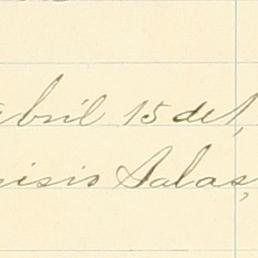 abril 15 de 1,
nisio Salas,